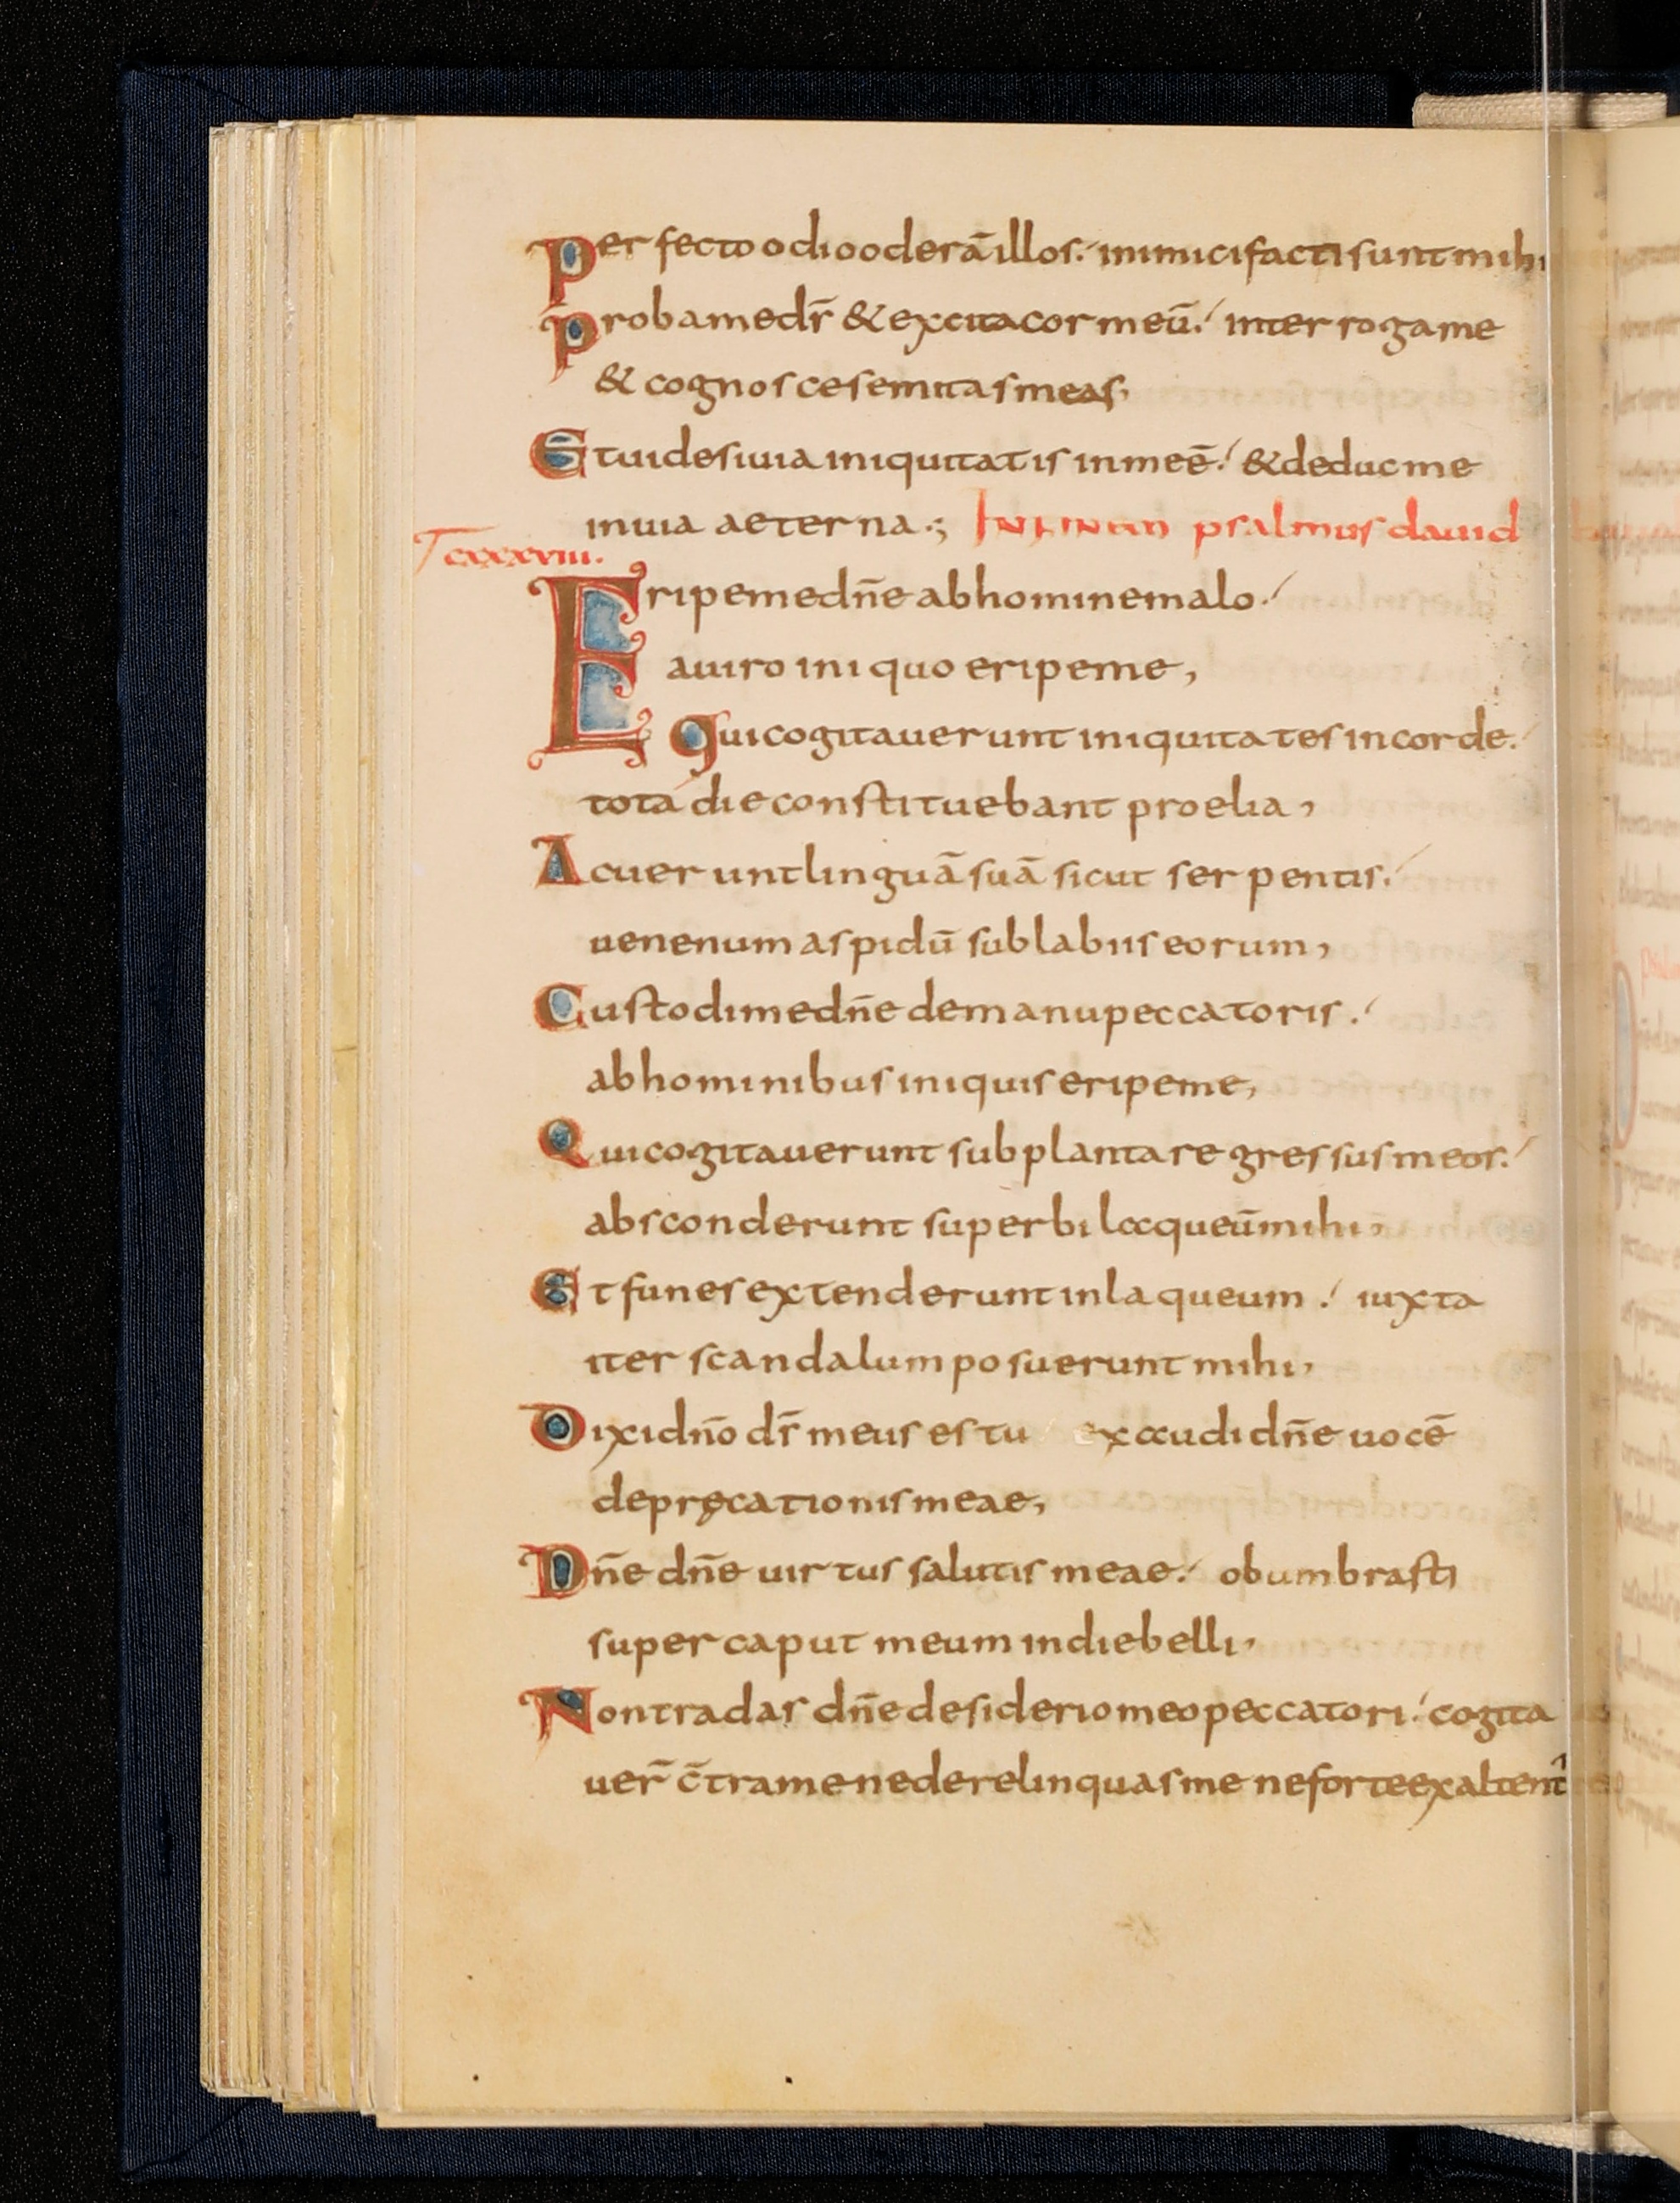 Perfecto odio oderā illos. inimici facti sunt mihi
Proba me dr̄ & excita cor meū. interroga me
& cognosce semitas meas,
Et uide si uia iniquitatis in me ē. & deduc me
in uia aeterna.; IN FINEM psalmus dauid
cxxxviiii.
Eripe me dn̄e ab homine malo.
a uiro iniquo eripe me,
qui cogitauerunt iniquitates in corde.
tota die constituebant proelia,
Acuerunt linguā suā sicut serpentis.
uenenum aspidū sub labiis eorum,
Custodi me dn̄e de manu peccatoris.
ab hominibus iniquis eripe me,
Qui cogitauerunt subplantare gressus meos.
absconderunt superbi laqueū mihi,
Et funes extenderunt in laqueum. iuxta
iter scandalum posuerunt mihi,
Dixi dn̄o dr̄ meus es tu exaudi dn̄e uocē
depręcationis meae,
Dn̄e dn̄e uirtus salutis meae. obumbrasti
super caput meum in die belli,
Non tradas dn̄e desiderio meo peccatori. cogita
uer̄ c̄tra me ne derelinquas me ne forte exaltent̄